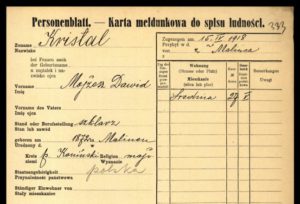 Personenblatt. — Karta meldunkowa do spisu ludności.
333
Zuname
Nazwisko
Kristal
bei Frauen auch
der Geburtsname
u mężatek i na-
zwisko ojca
Vorname
Imię
Mojżesz Dawid
Vorname des Vaters
Imię ojca
Stand oder Berufsstellung
Stan lub zawód
szklarz
geboren am
Urodzony d.
1872
Kreis
p. Koniński
Religion
Wyznanie
mojż
Staatsangehörigkeit
Przynależność państwowa
polska
Ständiger Einwohner von
Stały mieszkaniec
Zugezogen am
Przybył d.
15. IV. 1918
z
Wohnung
(Strasse oder Platz)
Mieszkanie
(ulica lub plac)
Bemerkungen
Uwagi
Średnia 27